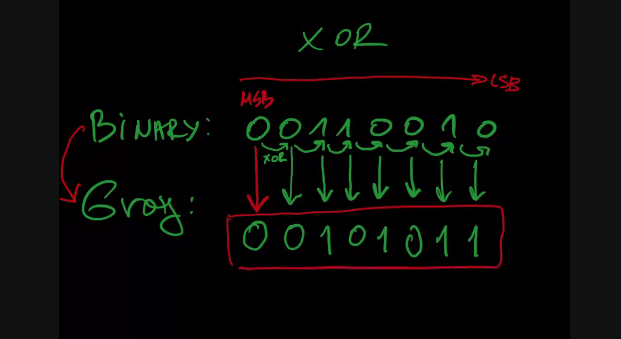 XOR
LSB
MSB
BINARY: 0 0 1 1 0 0 1 0
XOR
Gray:
0 0 1 0 1 0 1 1